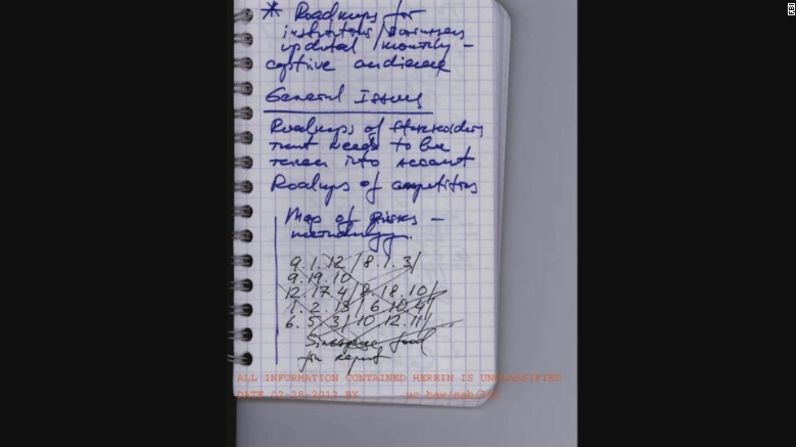 * Roadmaps for
institutions/businesses
updated monthly -
captive audience
General Issues
Roadmaps of stakeholders
that needs to be
taken into account
Roadmaps of competitors
Map of Risks -
methodology.
9. 1. 12 / 8. 1. 3/
9. 19. 10
12. 17. 4/ 8. 18. 10/
1. 2. 13 / 6 10 4/
6. 5. 3/ 10 12. 11/
food
for report
ALL INFORMATION CONTAINED HEREIN IS UNCLASSIFIED
DATE 02-28-2012 BY uc baw/sab/
FBI